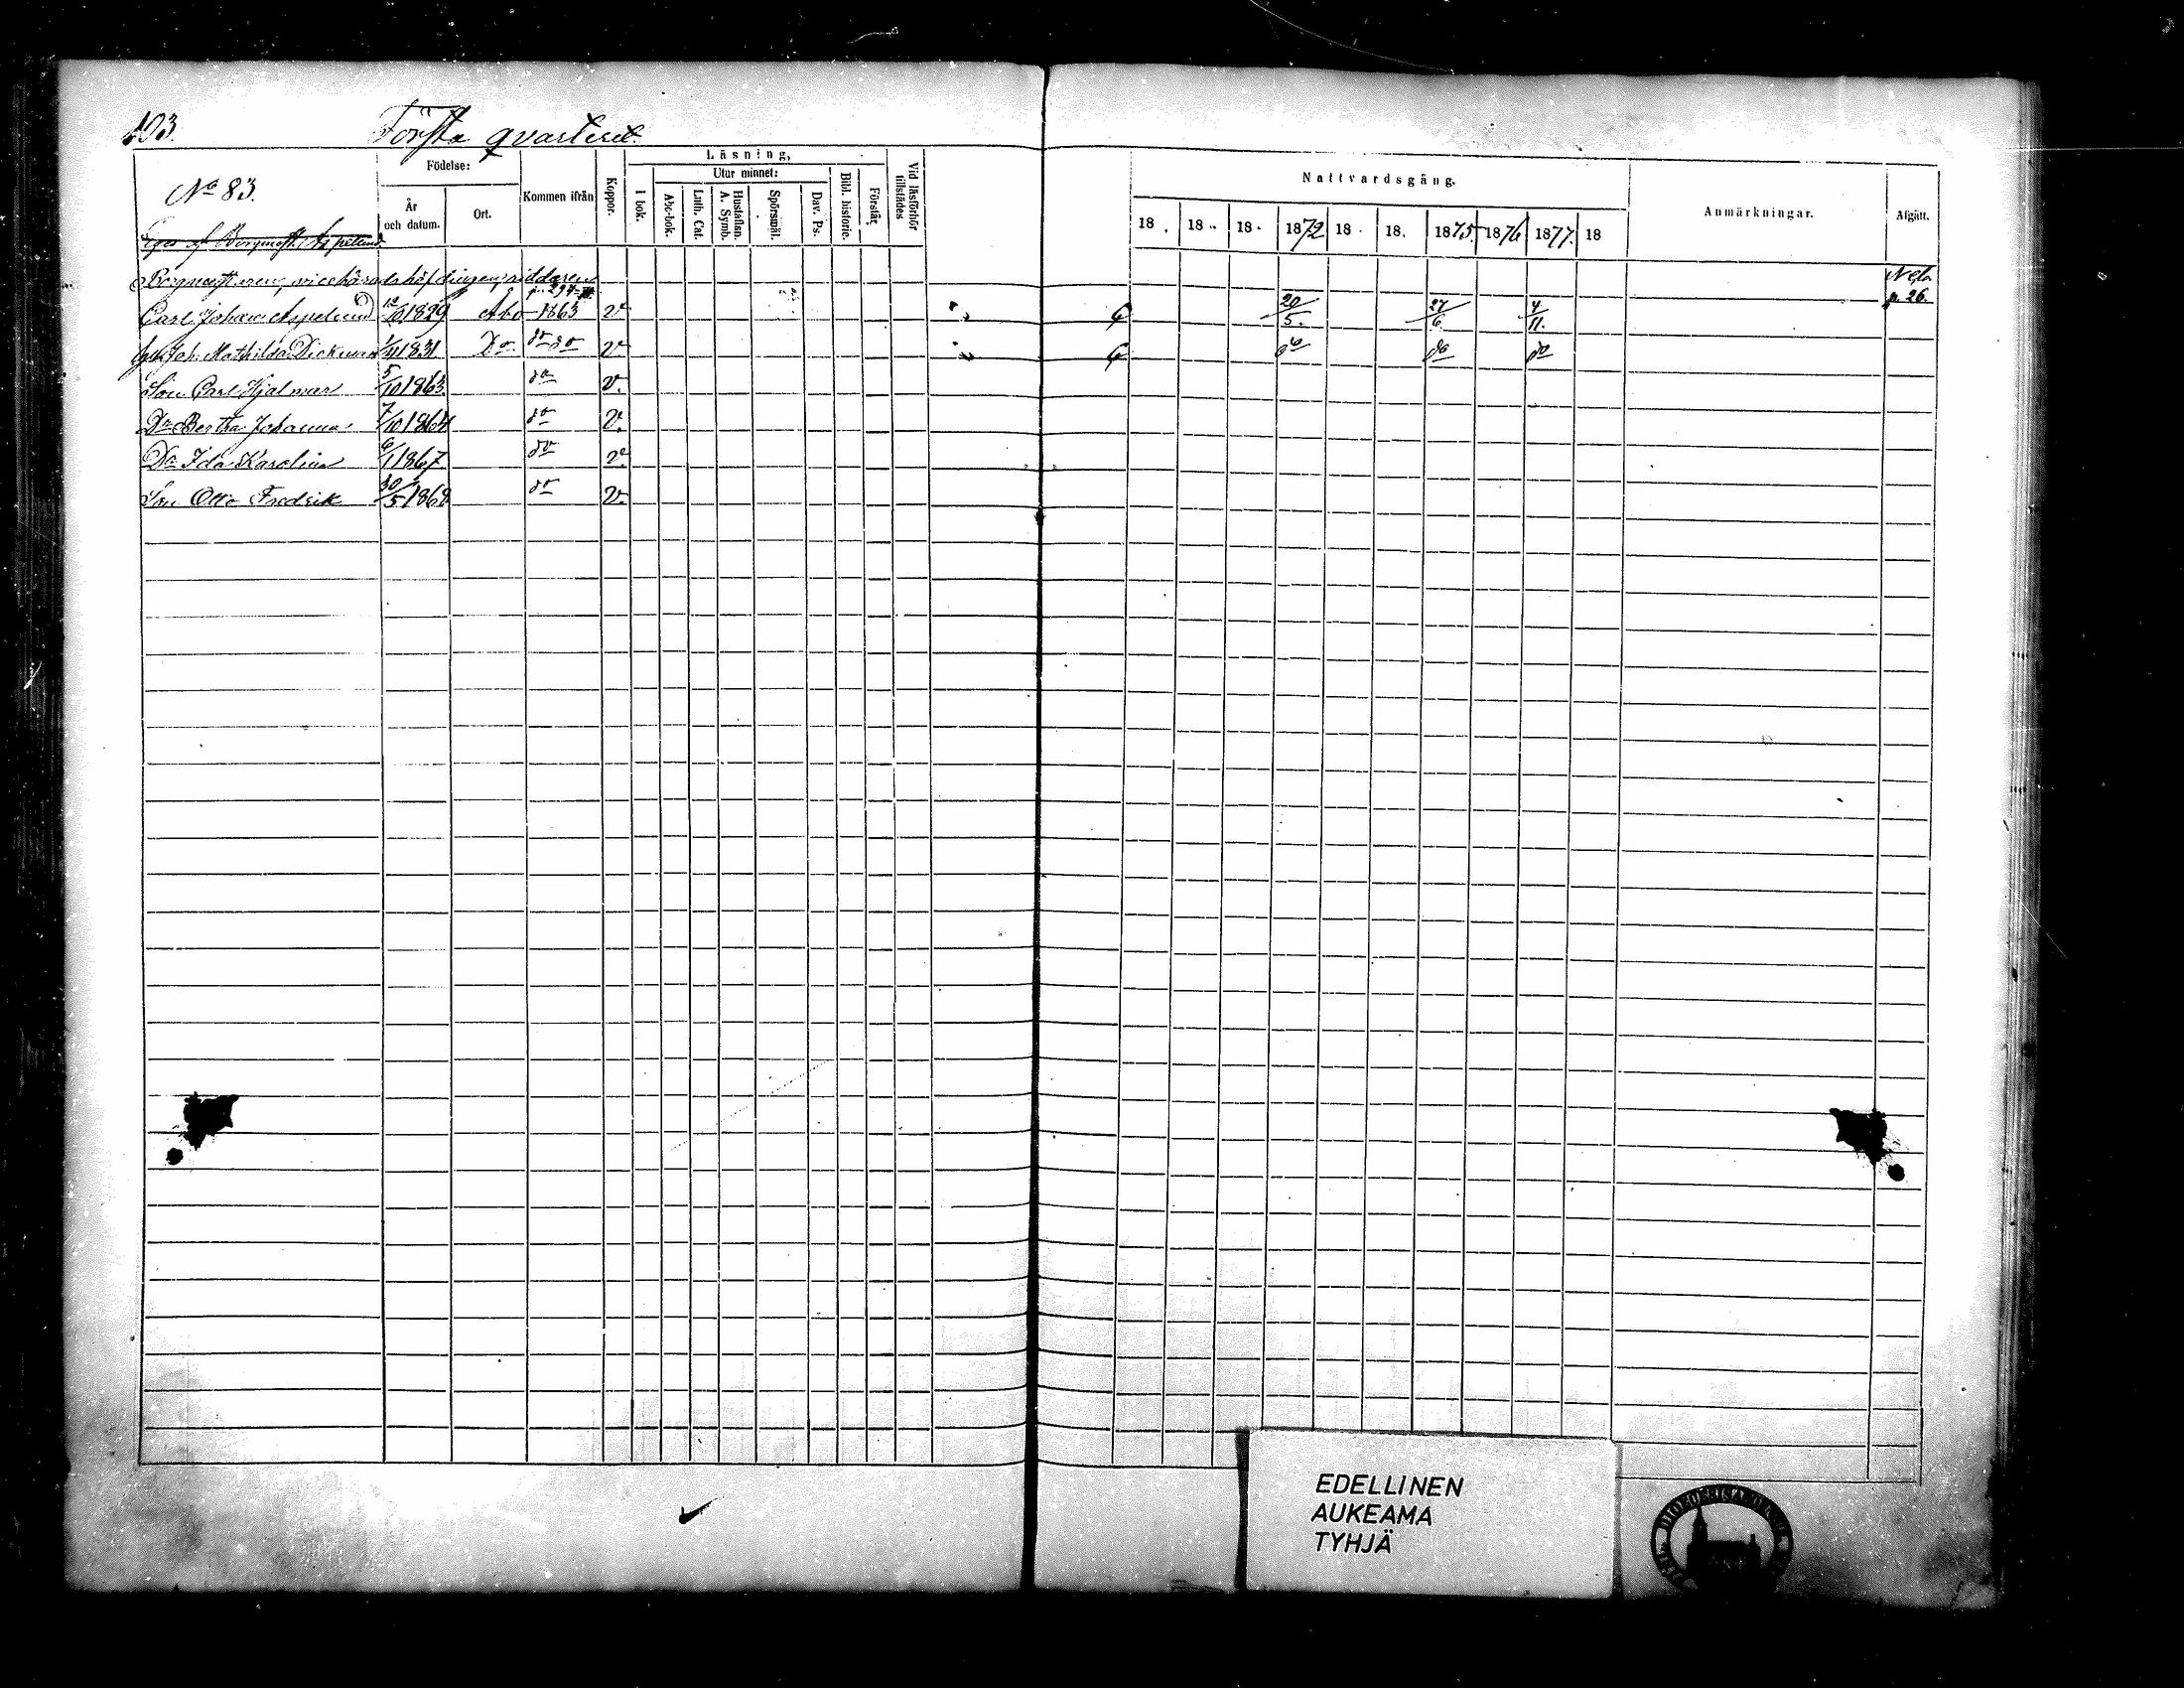 103.
Första qvarteret.
No 83.
Födelse:
År och datum.
Ort.
Kommen ifrån
Koppor.
Läsning,
I bok.
Utur minnet:
Abc-bok.
Luth. Cat.
Hustaflan. A. Symb.
Spörsmål.
Dav. Ps.
Bibl. historie.
Förstår.
Vid läsförhör tillstädes
Nattvardsgång.
18 18 18 1872 18 18 1875 1876 1877 18
Anmärkningar.
Afgått.
Eges af Bergmest. Aspelund
Bergmestaren, vicehäradshöfdingen, riddaren
p. 294
N. Gb. p. 26.
Carl Johan Aspelund 12/10 1829 Åbo 1863 v. 20/5. 27/6. 4/11.
Joh. Mathilda Dickman 1/11 1831 Do do do v. do do do
Son Carl Hjalmar 5/10 1863. do v.
Dr Bertha Johanna 7/10 1864 do v.
Dr Ida Karolina 6/1 1867 do v.
Son Otto Fredrik 30/5 1868 do v.
EDELLINEN
AUKEAMA
TYHJÄ